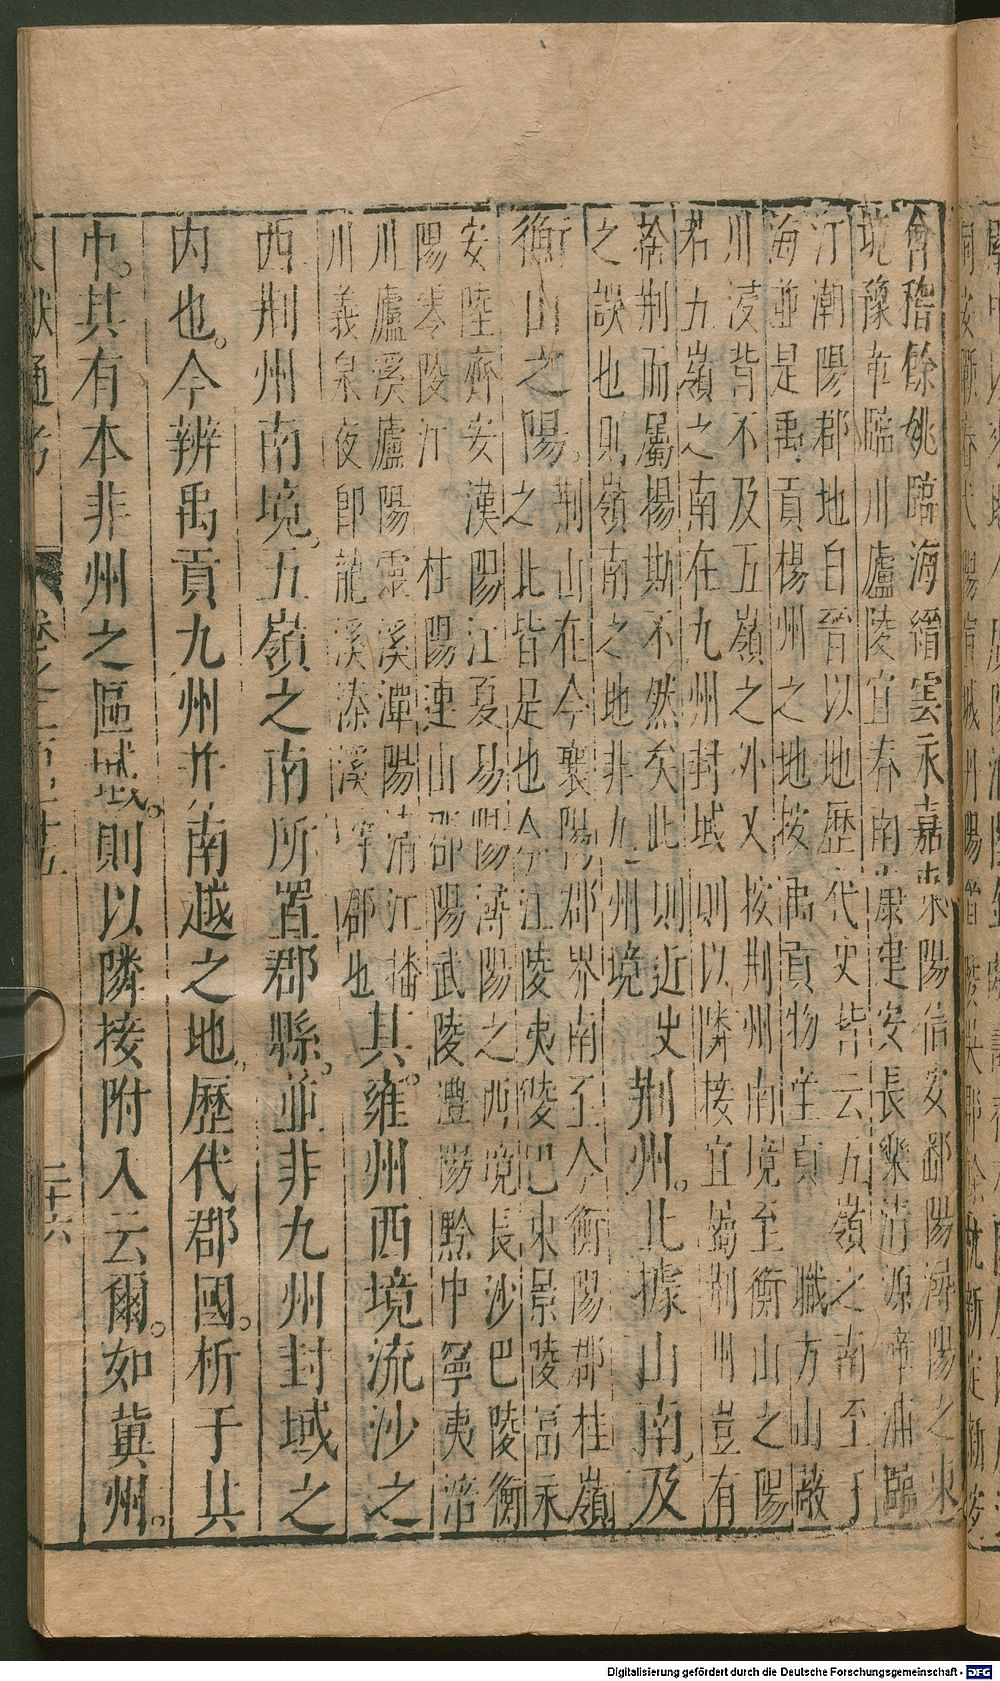 會稽餘姚臨海縉雲永嘉東陽信安鄱陽潯陽之東
境豫章臨川廬陵宜春南康建安長樂清源漳浦臨
汀潮陽郡地自晉以地歷代史皆云五嶺之南至于
海並是禹貢楊州之地按禹貢物産貢職方山藪
川浸皆不及五嶺之外又按荆州南境至衡山之陽
若五嶺之南在九州封域則以隣接宜屬荆州豈有
捨荆而屬揚斯不然矣此則近史
之誤也則嶺南之地非九州境
荆州。北據山南。及
衡山之陽。
荆山在今襄陽郡界南至今衡陽郡桂嶺
之北皆是也今江陵夷陵巴東景陵富水
安陸齊安漢陽江夏易陽潯陽之西境長沙巴陵衡
陽零陵江桂陽連山邵陽武陵澧陽黔中寧夷涪
川廬溪廬陽靈溪潭陽清江播
川義泉夜郎龍溪溱溪寧郡也
其。雍州西境流沙之
西荆州南境。五嶺之南所置郡縣。並非九州封域之
内也。今辨禹貢九州并南越之地。歷代郡國。析于其
中。其有本非州之區域。則以隣接附入云爾。如冀州。
文獻通考
卷之三百十五
二十六
Digitalisierung gefördert durch die Deutsche Forschungsgemeinschaft - DFG